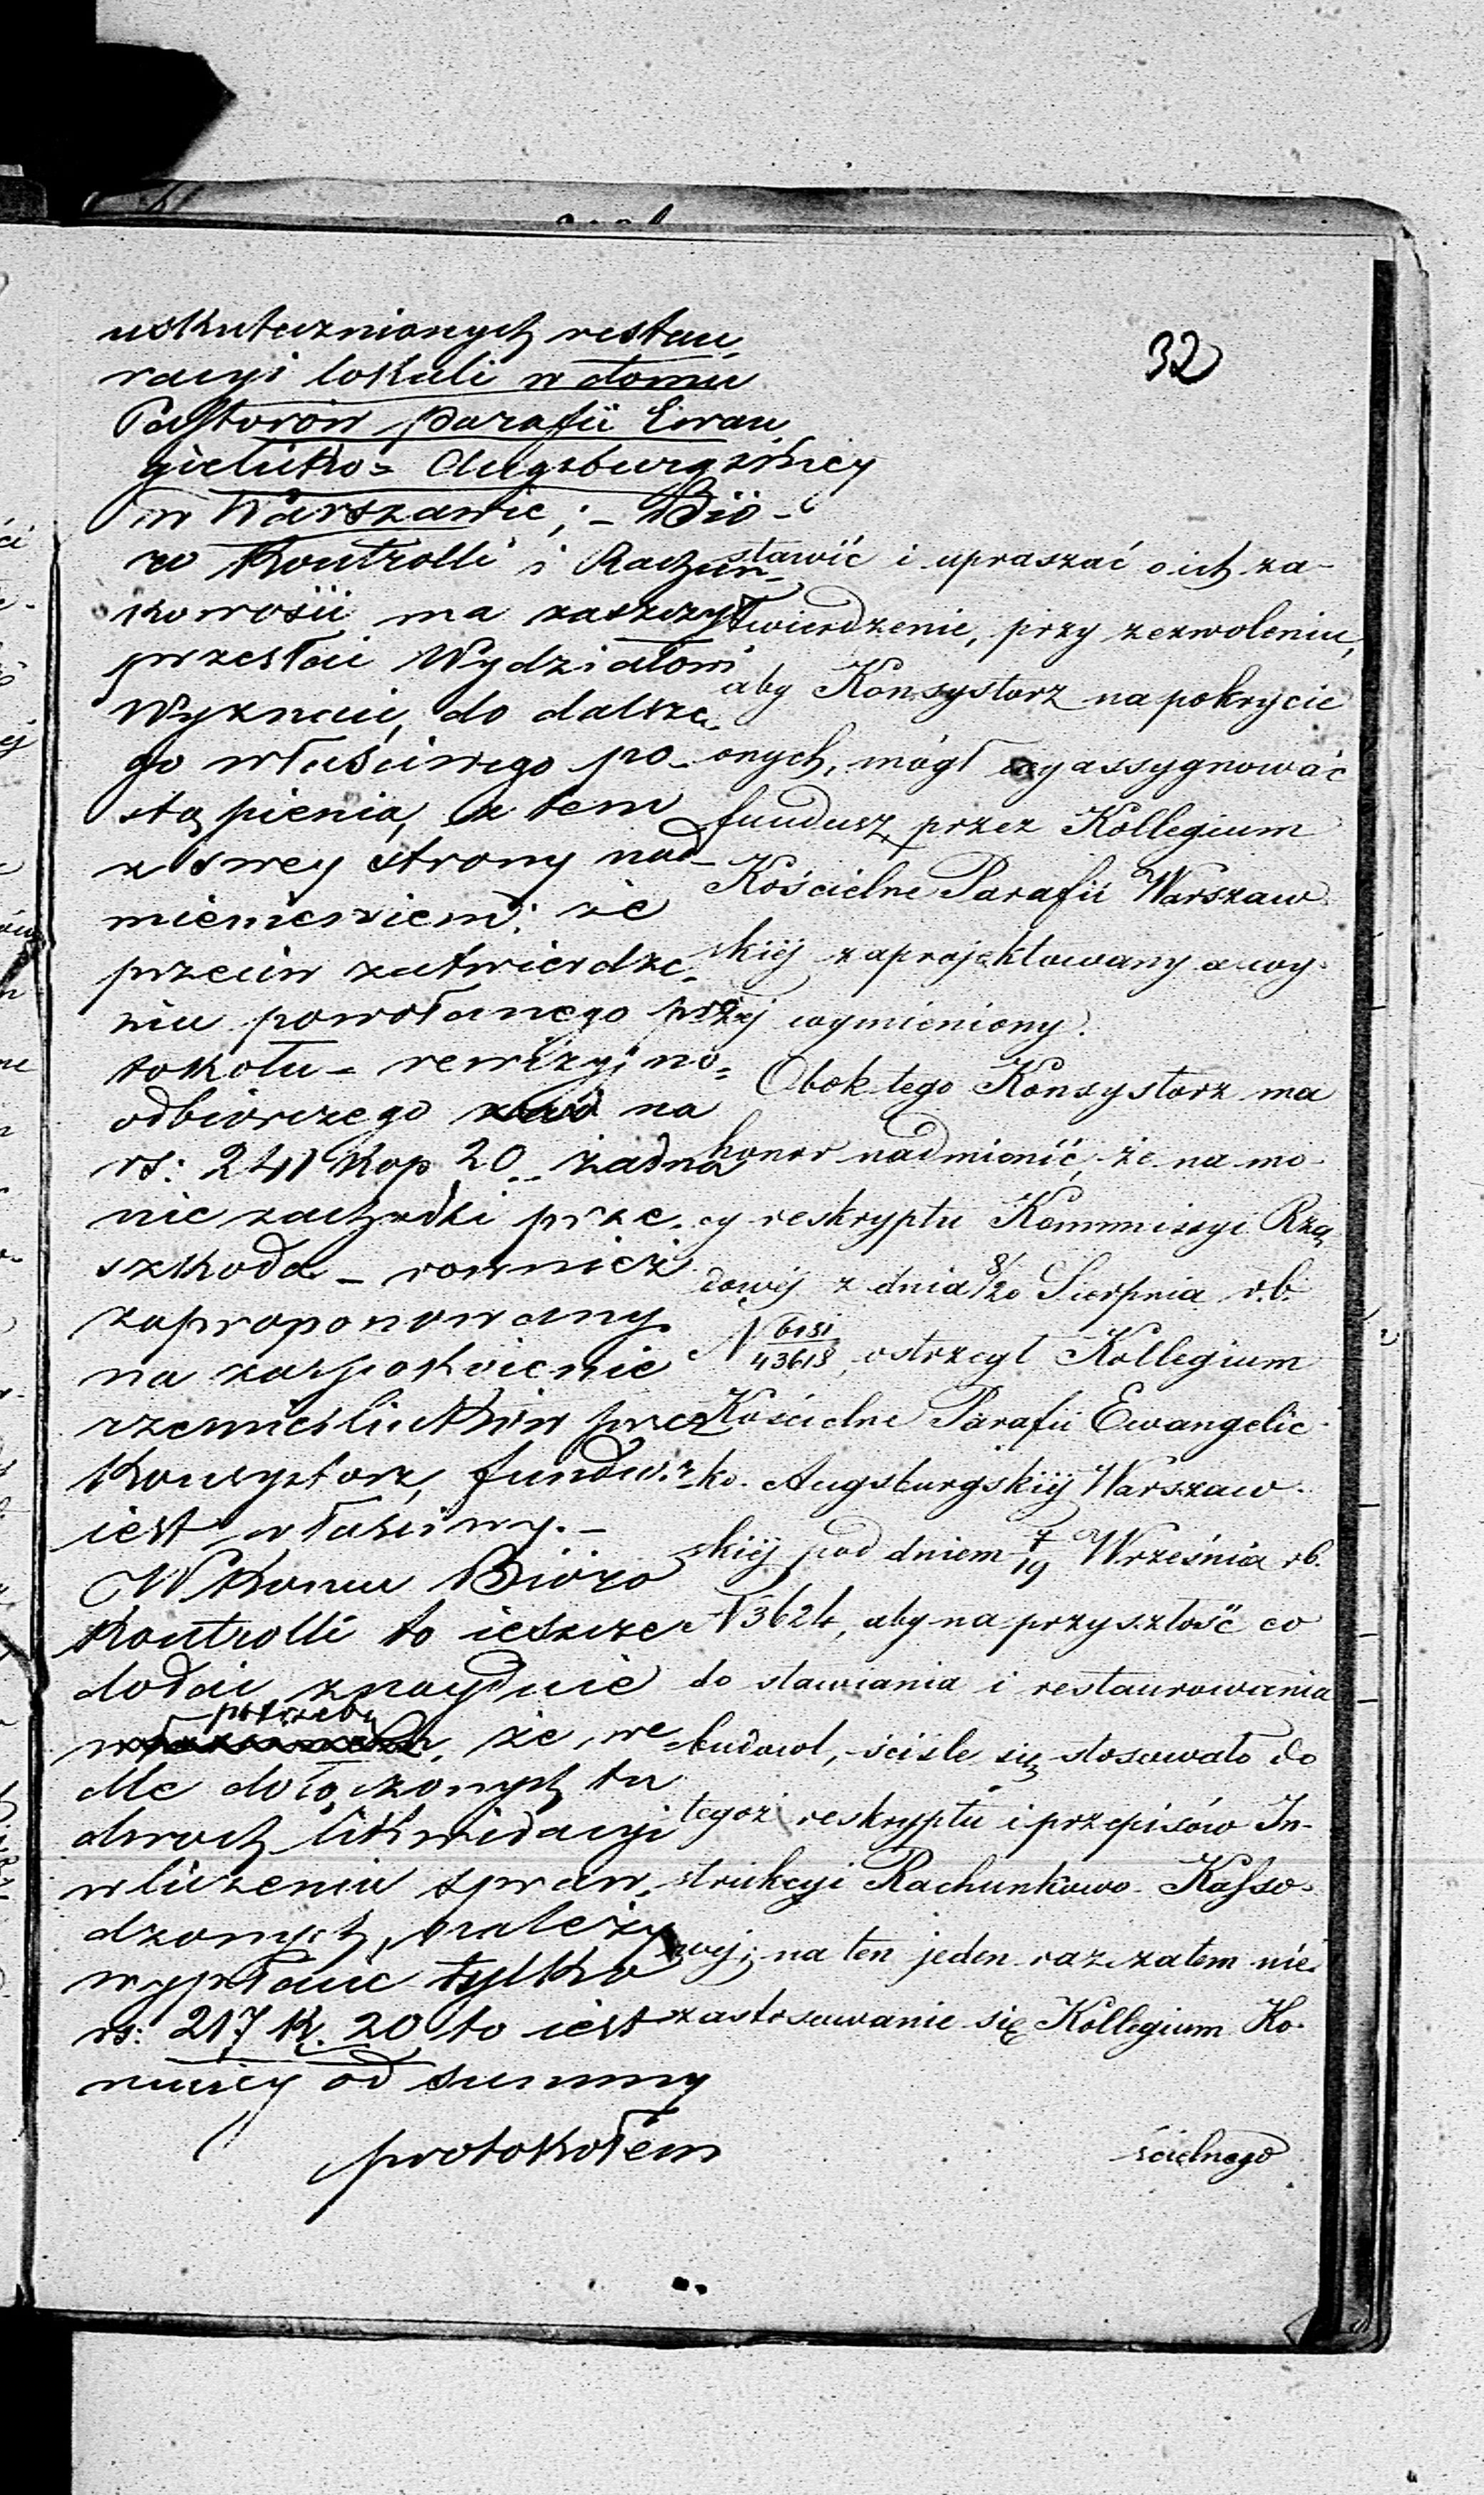 32
uskutecznionych restau„
racyi lokali w domu
Pastorów parafii Ewan„
gielicko= Augsburgskiey
w Warszawie; – Bió-
ro Kontrolli i Rachun-
kowości ma zaszczyt
przesłać Wydziałowi
Wyznań, do dalsze„
go właściwego po-
stąpienia, z tem
z swey strony nad-
mienieniem: że
przeciw zatwierdze„
niu powołanego pro
tokołu – rewizyjno=
odbiorczego na
rs: 241 kop 20 żadna
nie zachodzi prze„
szkoda – również
zaproponowany
na zaspokoienie
rzemieślników przez
Konsystorz, fundusz
iest właściwy. –
W końcu Bióro
Kontrolli to ieszcze
dodać znayduie
potrzebę
że, we
dle dołączonych tu
dwóch likwidacyi
w liczeniu spraw„
dzonych, należy
wypłacić tylko
rs: 217 k. 20 to iest
mniey od summy
protokółem
stawić i upraszać o ich za-
twierdzenie, przy zezwoleniu,
aby Konsystorz na pokrycie
onych, mógł wyassygnować
fundusz przez Kollegium
Kościelne Parafii Warszaw-
skiéj zaprojektowany a wy-
żéj wymieniony.
Obok tego Konsystorz ma
honor nadmienić, że na mo-
cy reskryptu Kommissyi Rzą
dowéj z dnia 8/20 Sierpnia r.b.
N 6131/43618, ostrzegł Kollegium
Kościelne Parafii Ewangelic-
ko-Augsburgskiéj Warszaw-
skiéj pod dniem 7/19 Września rb.
N 3624, aby na przyszłość co
do stawiania i restaurowania
budowl, ściśle się stosowało do
tegoż reskryptu i przepisów In-
strukcyi Rachunkowo-Kasso-
wéj; na ten jeden raz zatem nie-
zastosowanie się Kollegium Ko-
ścielnego